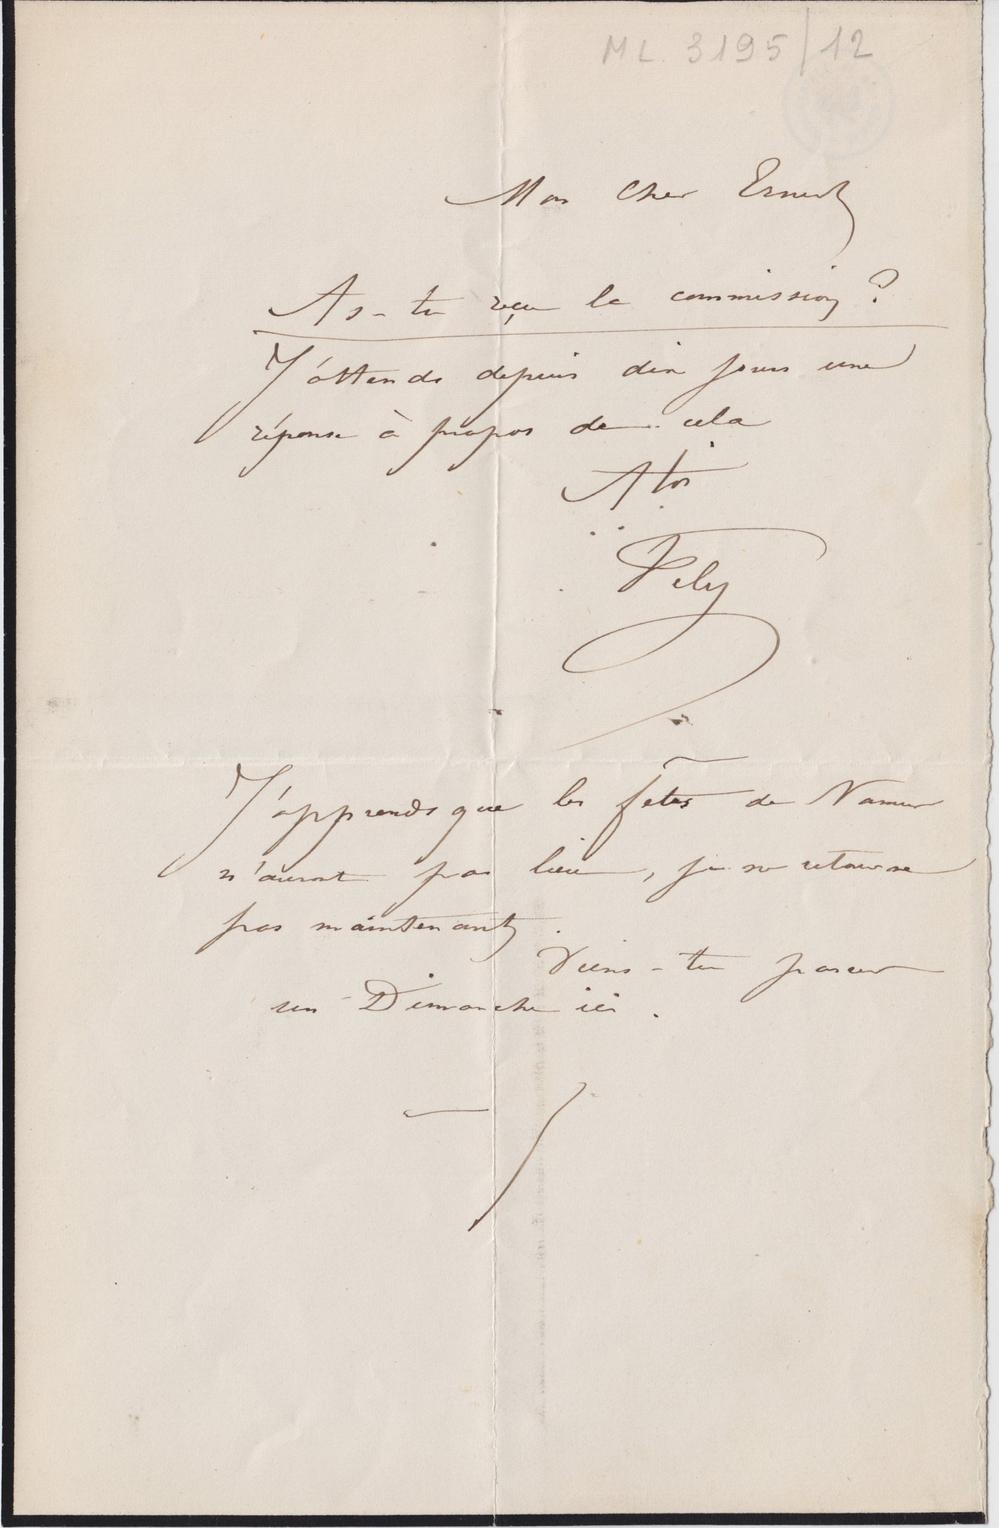 ML. 3195/12
Mon cher Ernest
As-tu reçu la commission ?
J'attends depuis dix jours une
réponse à propos de cela
A toi
Fely
J'apprends que les fêtes de Namur
n'auront pas lieu, je ne retourne
pas maintenant.
Viens-tu passer
un Dimanche ici.